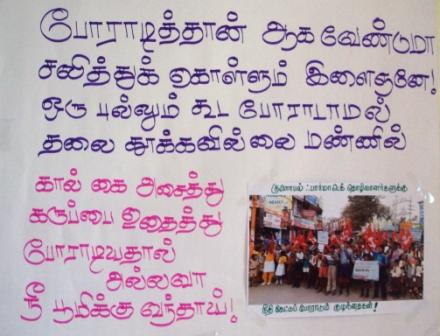 போராடித்தான் ஆகவேண்டுமா
சலித்துக் கொள்ளும் இளைஞனே!
ஒரு புல்லும் கூட போராடாமல்
தலை தூக்கவில்லை மண்ணில்
கால் கை அசைத்து
கருப்பை உதைத்து
போராடியதால்
அல்லவா
நீ பூமிக்கு வந்தாய்!
பார்மாடெக் தொழிலாளர்களுக்கு
நீதி கேட்டுப் போராடும் குழந்தைகள்!